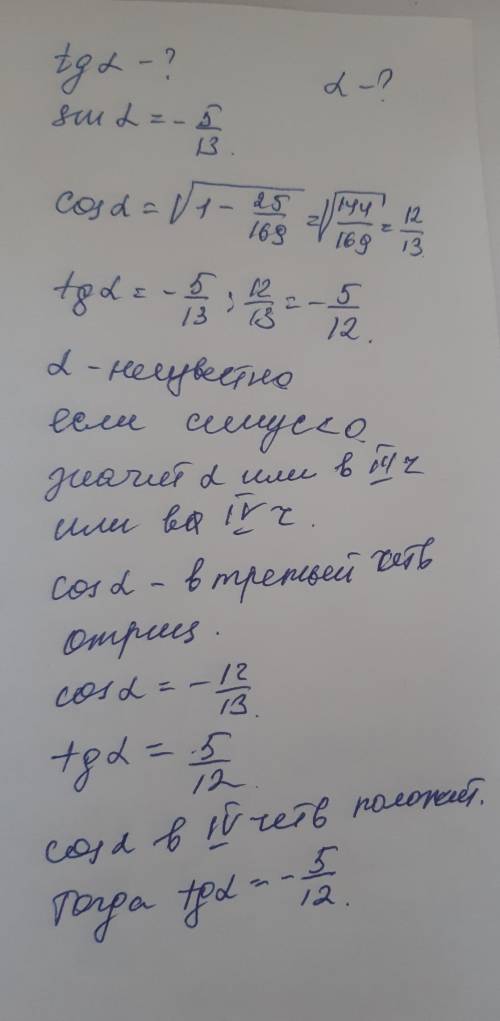 tg α - ?
α - ?
sin α = - 5/13.
cos α = √(1 - 25/169) = √(144/169) = 12/13.
tg α = - 5/13 : 12/13 = - 5/12.
α - неизвестно
если синус < 0
значит α или в III ч
или в IV ч.
cos α - в третьей четв
отриц.
cos α = - 12/13.
tg α = 5/12.
cos α в IV четв положит.
тогда tg α = - 5/12.